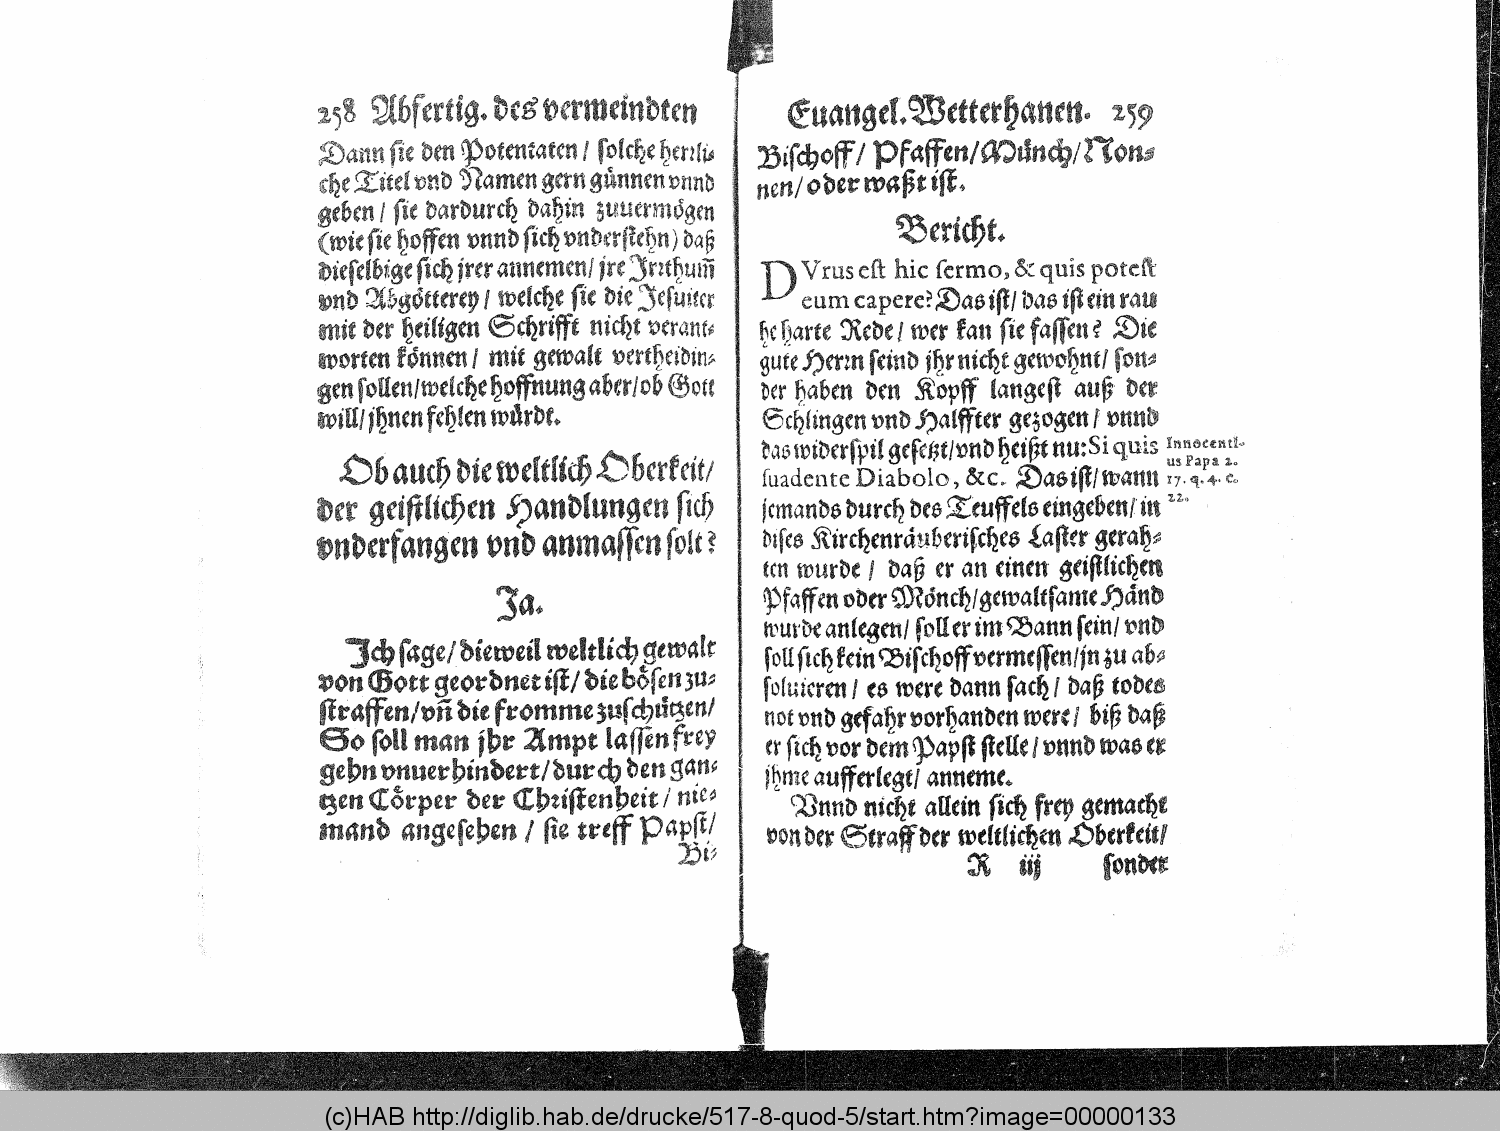 258 Abfertig. des vermeindten
Dann sie den Potentaten / solche herrli⸗
che Titel vnd Namen gern günnen vnnd
geben / sie dardurch dahin zuuermögen
(wie sie hoffen vnnd sich vnderstehn) daß
dieselbige sich jrer annemen / jre Jrrthum̃
vnd Abgötterey / welche sie die Jesuiter
mit der heiligen Schrifft nicht verant⸗
worten können / mit gewalt vertheidin⸗
gen sollen / welche hoffnung aber / ob Gott
will / jhnen fehlen würdt.
Ob auch die weltlich Oberkeit /
der geistlichen Handlungen sich
vnderfangen vnd anmassen solt?
Ja.
Jch sage / dieweil weltlich gewalt
von Gott geordnet ist / die bösen zu⸗
straffen / vñ die fromme zuschützen /
So soll man jhr Ampt lassen frey
gehn vnuerhindert / durch den gan⸗
tzen Cörper der Christenheit / nie⸗
mand angesehen / sie treff Papst /
Bi⸗
Euangel. Wetterhanen. 259
Bischoff / Pfaffen / Münch / Non⸗
nen / oder waßt ist.
Bericht.
DVrus est hic sermo, & quis potest
eum capere? Das ist / das ist ein rau
he harte Rede / wer kan sie fassen? Die
gute Herrn seind jhr nicht gewohnt / son⸗
der haben den Kopff langest auß der
Schlingen vnd Halffter gezogen / vnnd
das widerspil gesetzt / vnd heißt nu: Si quis
suadente Diabolo, &c. Das ist / wann
jemands durch des Teuffels eingeben / in
dises Kirchenräuberisches Laster gerah⸗
ten wurde / daß er an einen geistlichen
Pfaffen oder Mönch / gewaltsame Händ
wurde anlegen / soll er im Bann sein / vnd
soll sich kein Bischoff vermessen / jn zu ab⸗
soluieren / es were dann sach / daß todes
not vnd gefahr vorhanden were / biß daß
er sich vor dem Papst stelle / vnnd was er
jhme aufferlegt / anneme.
Vnnd nicht allein sich frey gemacht
von der Straff der weltlichen Oberkeit /
R iij sonder
Innocenti-
us Papa 2.
17. q. 4. c.
22.
(c)HAB http://diglib.hab.de/drucke/517-8-quod-5/start.htm?image=00000133